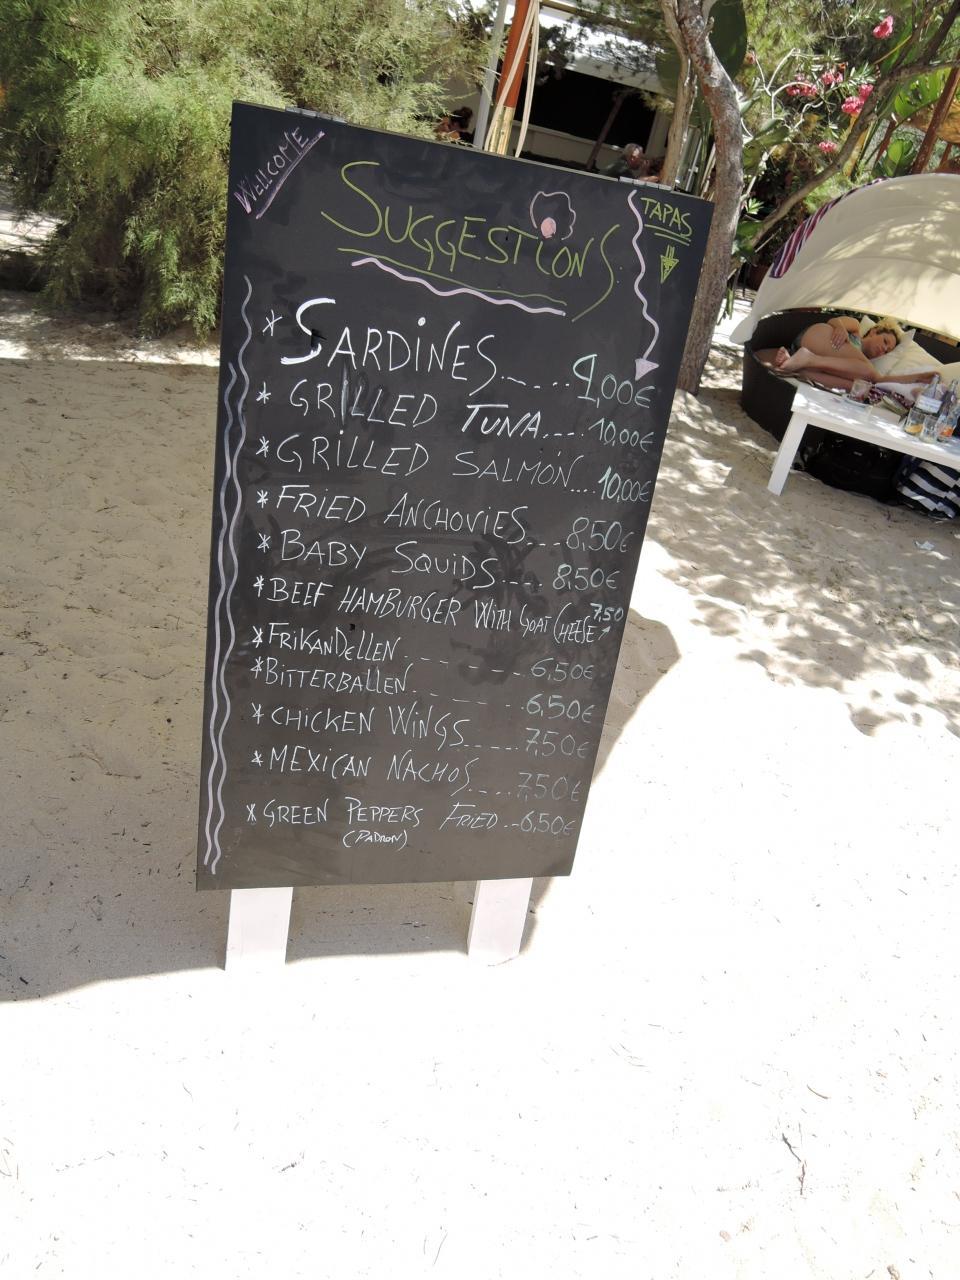 WELLCOME
SUGGESTIONS
TAPAS
* SARDINES....... 9,00€
* GRILLED TUNA.... 10,00€
* GRILLED SALMÓN... 10,00€
* FRIED ANCHOVIES... 8,50€
* BABY SQUIDS.... 8,50€
* BEEF HAMBURGER WITH GOAT CHEESE 7,50
* FRIKANDELLEN - - - - - - - 6,50€
* BITTERBALLEN. - - - .. 6,50€
* CHICKEN WINGS..... 7,50€
* MEXICAN NACHOS..... 7,50€
* GREEN PEPPERS FRIED..- 6,50€
(PADRON)